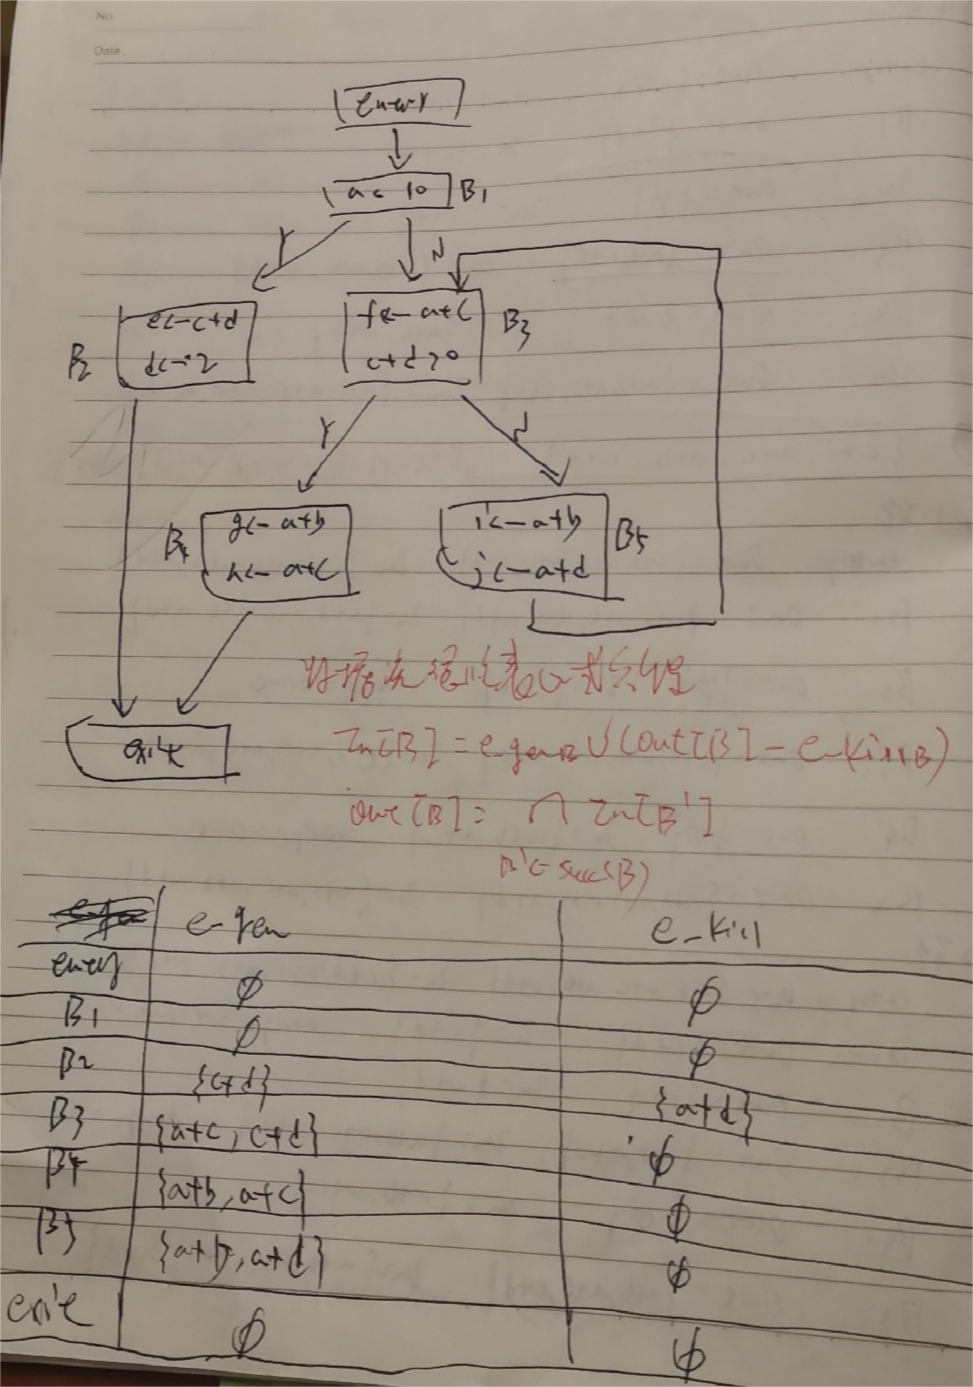 No.
Date.
entry
a < 10 B1
Y N
e<-c+d
d<-2
B2
f<-a+c
c+d>0
B3
Y N
g<-a+b
h<-a+c
B4
i<-a+b
j<-a+d
B5
exit
In[B] = e_genB ∪ (Out[B] - e_killB)
Out[B] = ∩ In[B']
B'∈succ(B)
e-gen e_kill
entry ∅ ∅
B1 ∅ ∅
B2 {c+d} {a+d}
B3 {a+c, c+d} ∅
B4 {a+b, a+c} ∅
B5 {a+b, a+d} ∅
exit ∅ ∅